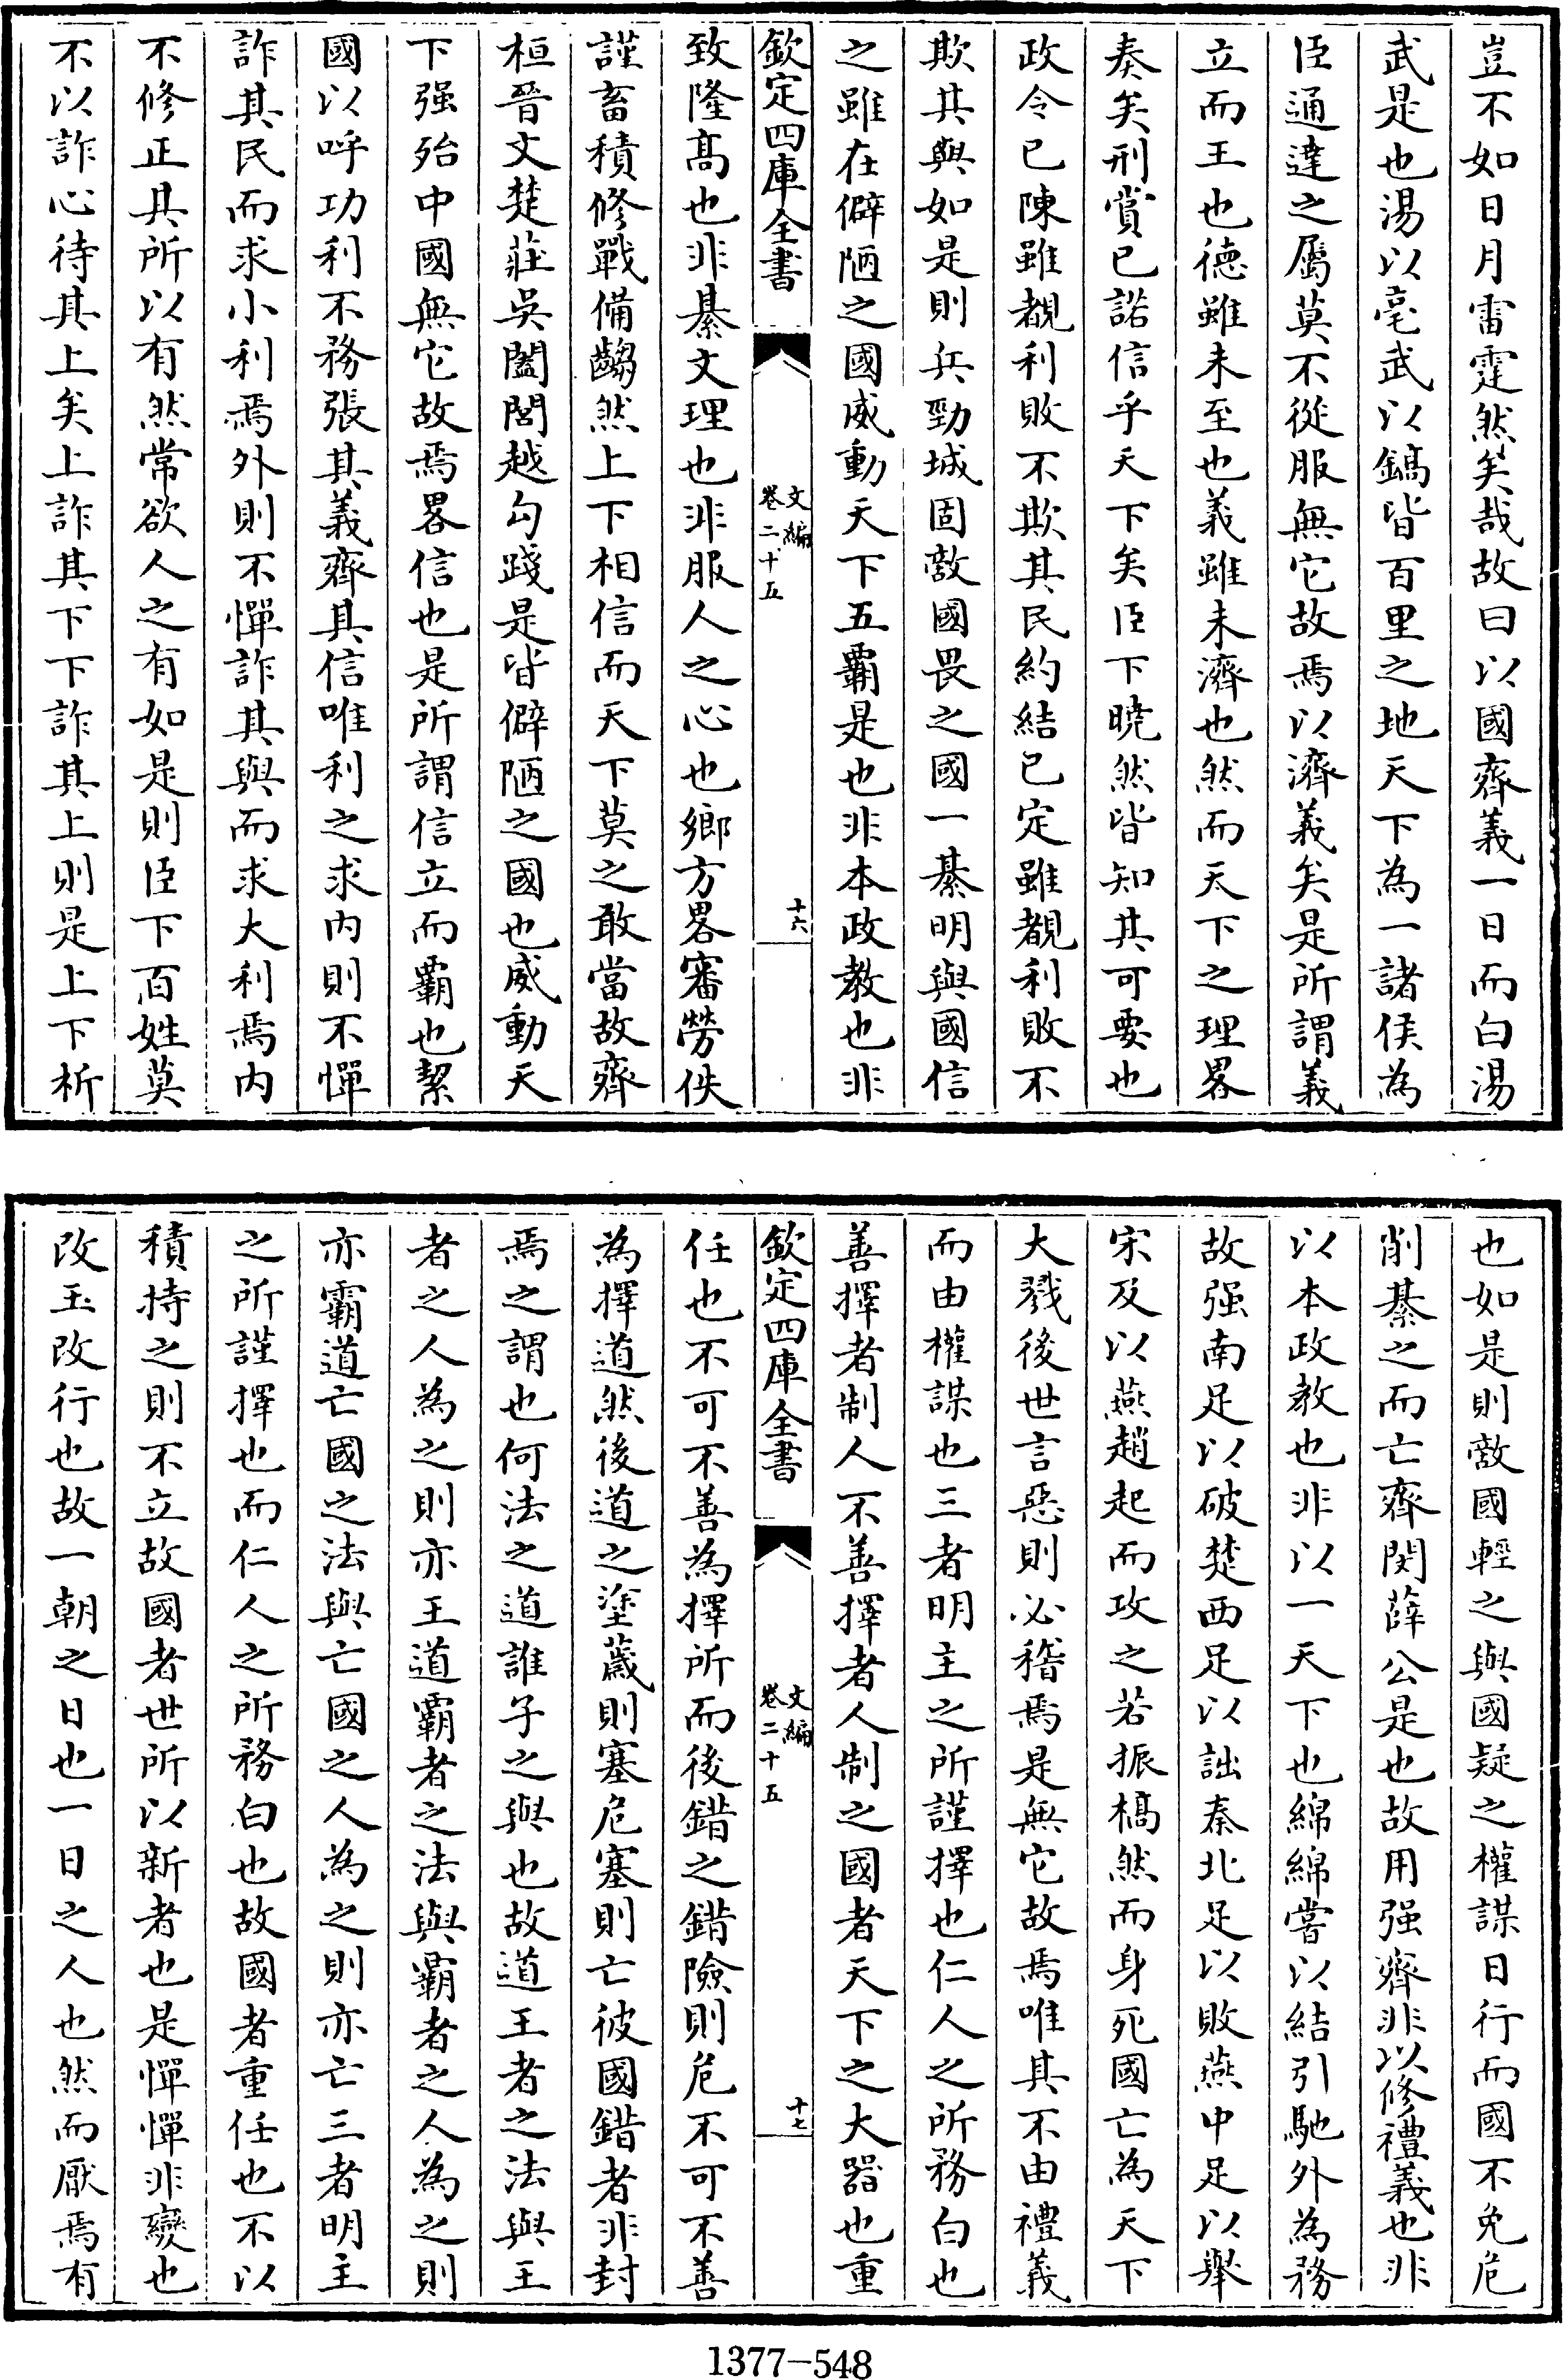 豈不如日月雷霆然矣哉故曰以國齊義一日而白湯
武是也湯以亳武以鎬皆百里之地天下為一諸侯為
臣通達之屬莫不從服無它故焉以濟義矣是所謂義
立而王也德雖未至也義雖未濟也然而天下之理畧
奏矣刑賞已諾信乎天下矣臣下曉然皆知其可要也
政令已陳雖覩利敗不欺其民約結已定雖覩利敗不
欺其與如是則兵勁城固敵國畏之國一綦明與國信
之雖在僻陋之國威動天下五霸是也非本政教也非
欽定四庫全書
文編
卷二十五
十六
致隆髙也非綦文理也非服人之心也鄉方畧審勞佚
謹畜積修戰備齺然上下相信而天下莫之敢當故齊
桓晉文楚莊吳闔閭越勾踐是皆僻陋之國也威動天
下强殆中國無它故焉畧信也是所謂信立而霸也挈
國以呼功利不務張其義齊其信唯利之求内則不憚
詐其民而求小利焉外則不憚詐其與而求大利焉内
不修正其所以有然常欲人之有如是則臣下百姓莫
不以詐心待其上矣上詐其下下詐其上則是上下析
也如是則敵國輕之與國疑之權謀日行而國不免危
削綦之而亡齊閔薛公是也故用强齊非以修禮義也非
以本政教也非以一天下也綿綿嘗以結引馳外為務
故强南足以破楚西足以詘秦北足以敗燕中足以舉
宋及以燕趙起而攻之若振槁然而身死國亡為天下
大戮後世言惡則必稽焉是無它故焉唯其不由禮義
而由權謀也三者明主之所謹擇也仁人之所務白也
善擇者制人不善擇者人制之國者天下之大器也重
欽定四庫全書
文編
卷二十五
十七
任也不可不善為擇所而後錯之錯險則危不可不善
為擇道然後道之塗薉則塞危塞則亡彼國錯者非封
焉之謂也何法之道誰子之與也故道王者之法與王
者之人為之則亦王道霸者之法與霸者之人為之則
亦霸道亡國之法與亡國之人為之則亦亡三者明主
之所謹擇也而仁人之所務白也故國者重任也不以
積持之則不立故國者世所以新者也是憚憚非變也
改玉改行也故一朝之日也一日之人也然而厭焉有
1377-548